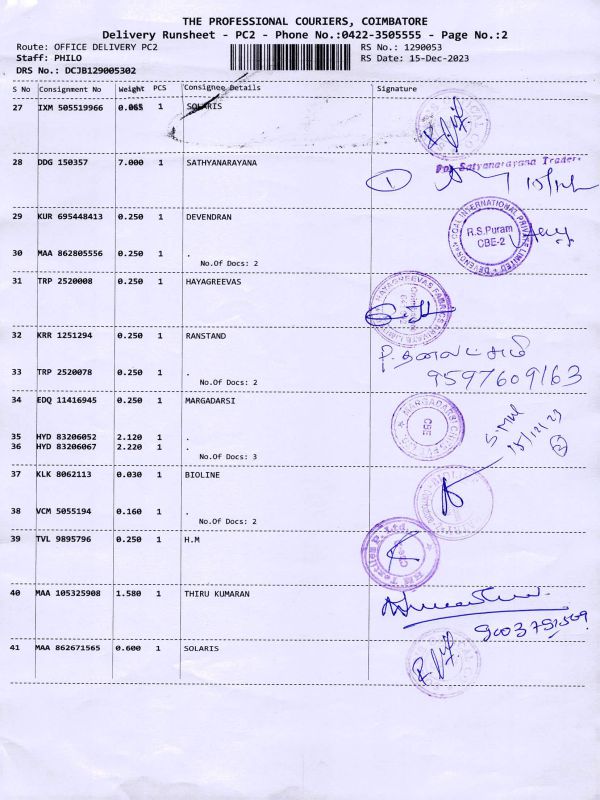 THE PROFESSIONAL COURIERS, COIMBATORE
Delivery Runsheet - PC2 - Phone No.:0422-3505555 - Page No.:2
Route: OFFICE DELIVERY PC2 RS No.: 1290053
Staff: PHILO RS Date: 15-Dec-2023
DRS No.: DCJB129005302
S No Consignment No Weight PCS Consignee Details Signature
27 IXM 505519966 0.065 1 SOLARIS
28 DDG 150357 7.000 1 SATHYANARAYANA
For Satyanarayana Traders
1
29 KUR 695448413 0.250 1 DEVENDRAN
DEVENDRAN COAL INTERNATIONAL PRIVATE LIMITED
R.S.Puram
CBE-2
30 MAA 862805556 0.250 1 .
No.Of Docs: 2
31 TRP 2520008 0.250 1 HAYAGREEVAS
32 KRR 1251294 0.250 1 RANSTAND
33 TRP 2520078 0.250 1 .
9597609163
No.Of Docs: 2
34 EDQ 11416945 0.250 1 MARGADARSI
CBE
15/12/23
2
35 HYD 83206052 2.120 1 .
36 HYD 83206067 2.220 1 .
No.Of Docs: 3
37 KLK 8062113 0.030 1 BIOLINE
38 VCM 5055194 0.160 1 .
No.Of Docs: 2
39 TVL 9895796 0.250 1 H.M
40 MAA 105325908 1.580 1 THIRU KUMARAN
41 MAA 862671565 0.600 1 SOLARIS